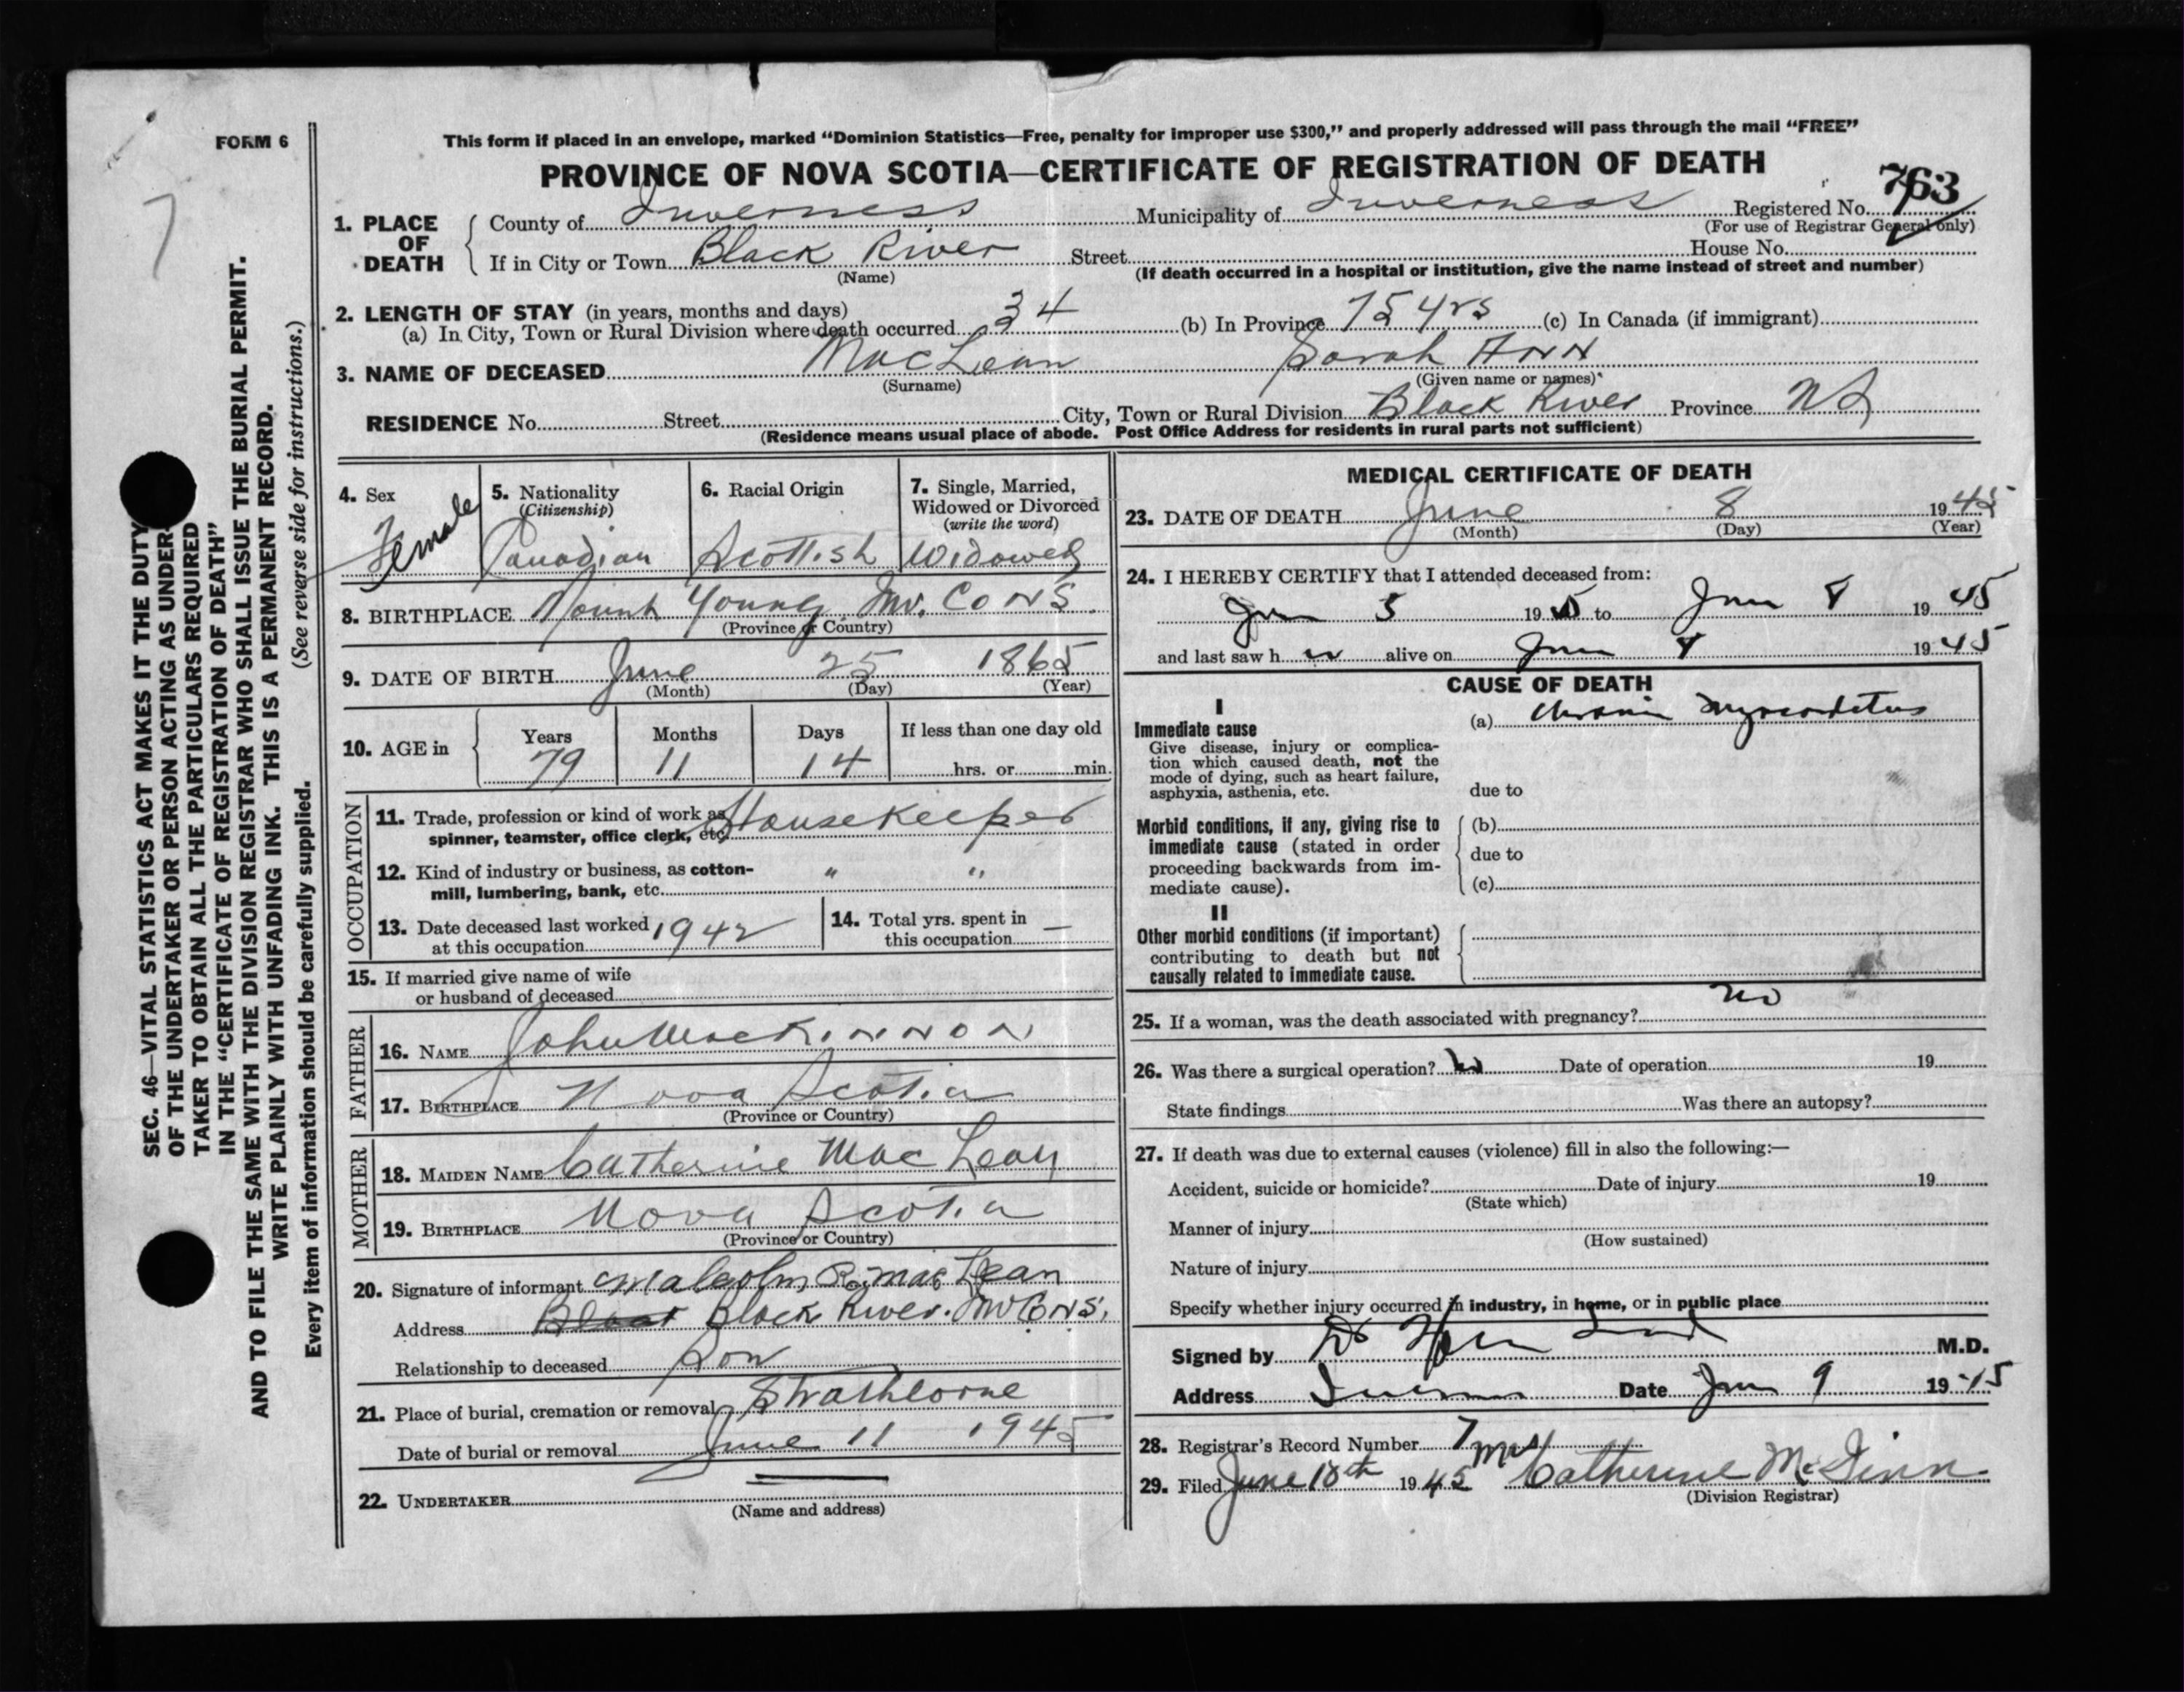 FORM 6
This form if placed in an envelope, marked “Dominion Statistics—Free, penalty for improper use $300,” and properly addressed will pass through the mail “FREE”
PROVINCE OF NOVA SCOTIA—CERTIFICATE OF REGISTRATION OF DEATH
763
7
1. PLACE OF DEATH
County of Inverness Municipality of Inverness Registered No.
(For use of Registrar General only)
If in City or Town Black River Street House No.
(Name) (If death occurred in a hospital or institution, give the name instead of street and number)
2. LENGTH OF STAY (in years, months and days)
(a) In City, Town or Rural Division where death occurred 34 (b) In Province 75 yrs (c) In Canada (if immigrant)
3. NAME OF DECEASED MacLean Sarah Ann
(Surname) (Given name or names)
RESIDENCE No. Street City, Town or Rural Division Black River Province NS
(Residence means usual place of abode. Post Office Address for residents in rural parts not sufficient)
SEC. 46—VITAL STATISTICS ACT MAKES IT THE DUTY
OF THE UNDERTAKER OR PERSON ACTING AS UNDER-
TAKER TO OBTAIN ALL THE PARTICULARS REQUIRED
IN THE “CERTIFICATE OF REGISTRATION OF DEATH”
AND TO FILE THE SAME WITH THE DIVISION REGISTRAR WHO SHALL ISSUE THE BURIAL PERMIT.
WRITE PLAINLY WITH UNFADING INK. THIS IS A PERMANENT RECORD.
Every item of information should be carefully supplied. (See reverse side for instructions.)
4. Sex
Female
5. Nationality
(Citizenship)
Canadian
6. Racial Origin
Scottish
7. Single, Married,
Widowed or Divorced
(write the word)
Widowed
8. BIRTHPLACE Mount Young Inv. Co NS.
(Province or Country)
9. DATE OF BIRTH June 25 1865
(Month) (Day) (Year)
10. AGE in
Years Months Days If less than one day old
79 11 14 hrs. or min.
OCCUPATION
11. Trade, profession or kind of work as
spinner, teamster, office clerk, etc. Housekeeper
12. Kind of industry or business, as cotton-
mill, lumbering, bank, etc. " "
13. Date deceased last worked
at this occupation 1942
14. Total yrs. spent in
this occupation —
15. If married give name of wife
or husband of deceased
FATHER
16. NAME John MacKinnon
17. BIRTHPLACE Nova Scotia
(Province or Country)
MOTHER
18. MAIDEN NAME Catherine MacLean
19. BIRTHPLACE Nova Scotia
(Province or Country)
20. Signature of informant Malcolm R. MacLean
Address Black River. Inv Co NS.
Relationship to deceased Son
21. Place of burial, cremation or removal Strathlorne
Date of burial or removal June 11 1945
22. UNDERTAKER
(Name and address)
MEDICAL CERTIFICATE OF DEATH
23. DATE OF DEATH June 8 1945
(Month) (Day) (Year)
24. I HEREBY CERTIFY that I attended deceased from:
June 5 19 to June 8 1945
and last saw h alive on June 1945
CAUSE OF DEATH
I
Immediate cause
Give disease, injury or complica-
tion which caused death, not the
mode of dying, such as heart failure,
asphyxia, asthenia, etc.
(a) Chronic Myocarditis
due to
Morbid conditions, if any, giving rise to
immediate cause (stated in order
proceeding backwards from im-
mediate cause).
(b)
due to
(c)
II
Other morbid conditions (if important)
contributing to death but not
causally related to immediate cause.
25. If a woman, was the death associated with pregnancy? no
26. Was there a surgical operation? no Date of operation 19
State findings Was there an autopsy?
27. If death was due to external causes (violence) fill in also the following:—
Accident, suicide or homicide? Date of injury 19
(State which)
Manner of injury
(How sustained)
Nature of injury
Specify whether injury occurred in industry, in home, or in public place
Signed by Dr M.D.
Address Date June 9 1945
28. Registrar's Record Number 7
29. Filed June 18th 1945 Mrs Catherine
(Division Registrar)